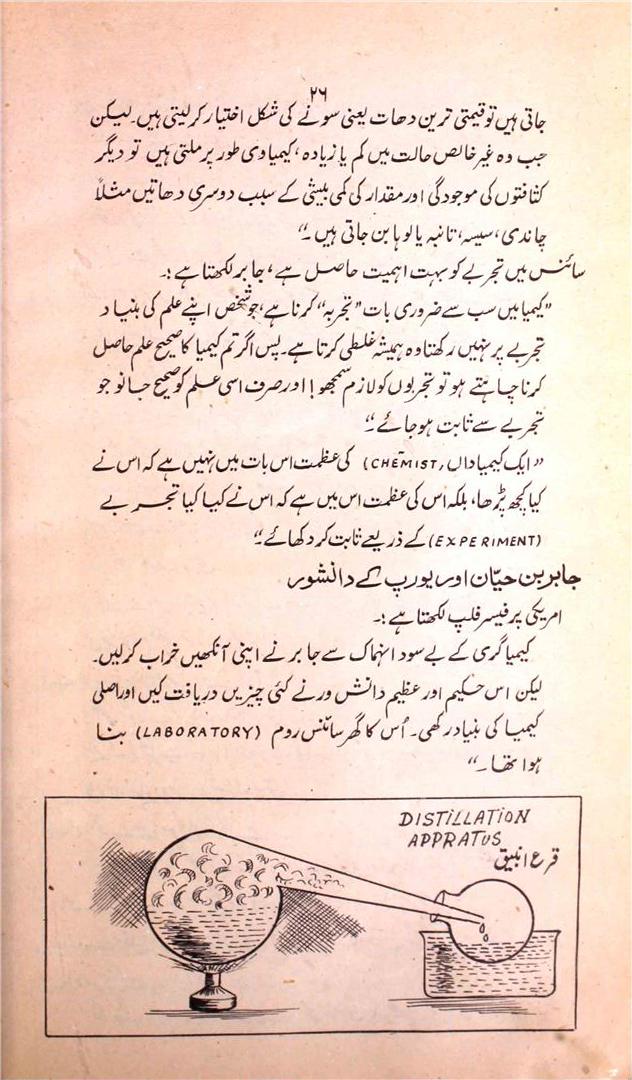 ۲۶
جاتی ہیں تو قیمتی ترین دھات یعنی سونے کی شکل اختیار کر لیتی ہیں۔ لیکن
جب وہ غیر خالص حالت میں کم یا زیادہ، کیمیاوی طور پر ملتی ہیں تو دیگر
کثافتوں کی موجودگی اور مقدار کی کمی بیشی کے سبب دوسری دھاتیں مثلاً
چاندی، سیسہ، تانبہ یا لوہا بن جاتی ہیں۔“
سائنس میں تجربے کو بہت اہمیت حاصل ہے، جابر لکھتا ہے:۔
”کیمیا میں سب سے ضروری بات ”تجربہ“ کرنا ہے، جو شخص اپنے علم کی بنیاد
تجربے پر نہیں رکھتا وہ ہمیشہ غلطی کرتا ہے۔ پس اگر تم کیمیا کا صحیح علم حاصل
کرنا چاہتے ہو تو تجربوں کو لازم سمجھو! اور صرف اسی علم کو صحیح جانو جو
تجربے سے ثابت ہو جائے۔“
”ایک کیمیاداں (CHEMIST, کی عظمت اس بات میں نہیں ہے کہ اس نے
کیا کچھ پڑھا، بلکہ اس کی عظمت اس میں ہے کہ اس نے کیا کیا تجربے
(EXPERIMENT) کے ذریعے ثابت کر دکھائے۔“
جابر بن حیّان اور یورپ کے دانشور
امریکی پرفیسر فلپ لکھتا ہے:۔
کیمیا گری کے بے سود انہماک سے جابر نے اپنی آنکھیں خراب کر لیں۔
لیکن اس حکیم اور عظیم دانش ور نے کئی چیزیں دریافت کیں اور اصلی
کیمیا کی بنیاد رکھی۔ اُس کا گھر سائنس روم (LABORATORY) بنا
ہوا تھا۔“
DISTILLATION
APPRATUS
قرع انبیق